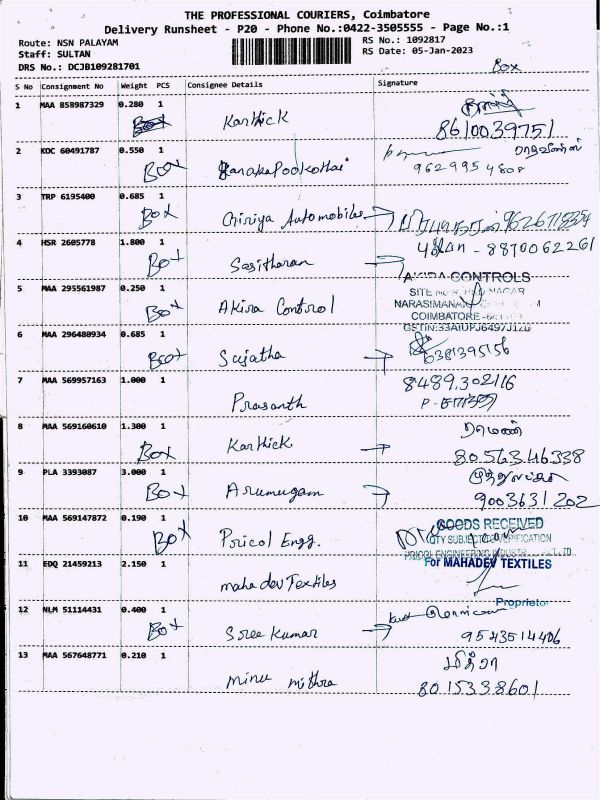 THE PROFESSIONAL COURIERS, Coimbatore
Delivery Runsheet - P20 - Phone No.:0422-3505555 - Page No.:1
Route: NSN PALAYAM RS No.: 1092817
Staff: SULTAN RS Date: 05-Jan-2023
DRS No.: DCJB109281701
Box
S No Consignment No Weight PCS Consignee Details Signature
1 MAA 858987329 0.280 1
Box Karthick
8610039751
2 KOC 60491787 0.550 1
Box
3 TRP 6195400 0.685 1
Box Automobiles
4 HSR 2605778 1.800 1 8870062261
Box Sasitharan
AKIRA CONTROLS
5 MAA 295561987 0.250 1 SITE NAGAR
Box Akira Control NARASIMANAI
COIMBATORE
6 MAA 296480934 0.685 1
Box Sujatha 6381395156
7 MAA 569957163 1.000 1 8489302116
Prasanth
8 MAA 569160610 1.300 1 ரமணி
Box Karthick 8056346338
9 PLA 3393087 3.000 1
Box Arumugam 9003631202
10 MAA 569147872 0.190 1 GOODS RECEIVED
QTY SUBJECTED VERIFICATION
Box Pricol Engg. PRICOL ENGINEERING LTD
11 EDQ 21459213 2.150 1 For MAHADEV TEXTILES
mahadev Textiles
Proprietor
12 NLM 51114431 0.400 1
Box Sree Kumar 9543514406
13 MAA 567648771 0.210 1 மித்ரா
minu mithra 8015338601